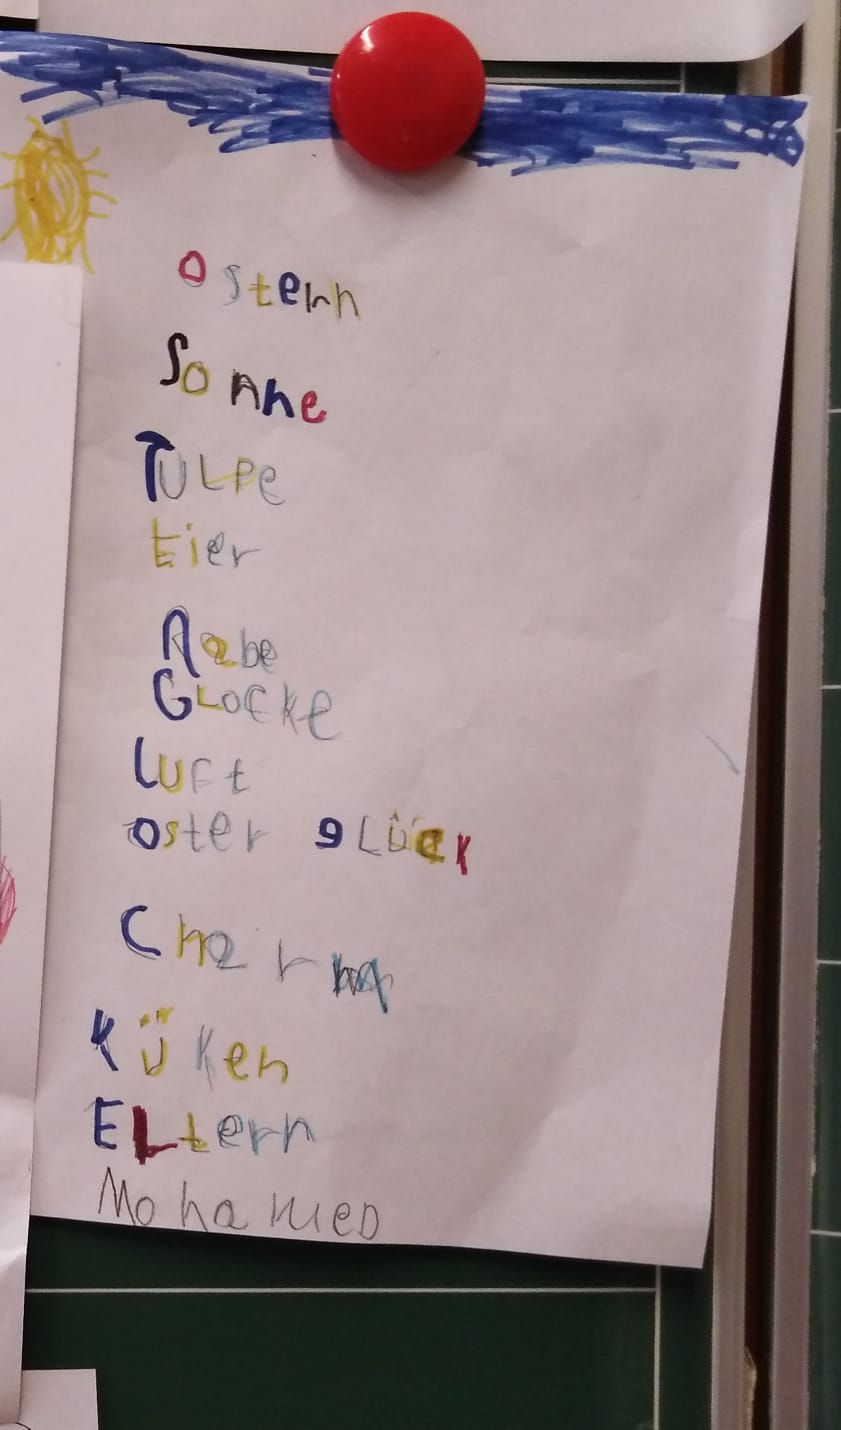 Ostern
Sonne
TULPe
Eier
Rabe
GLOCKe
Luft
Oster gLücK
KüKen
ELtern
MohameD